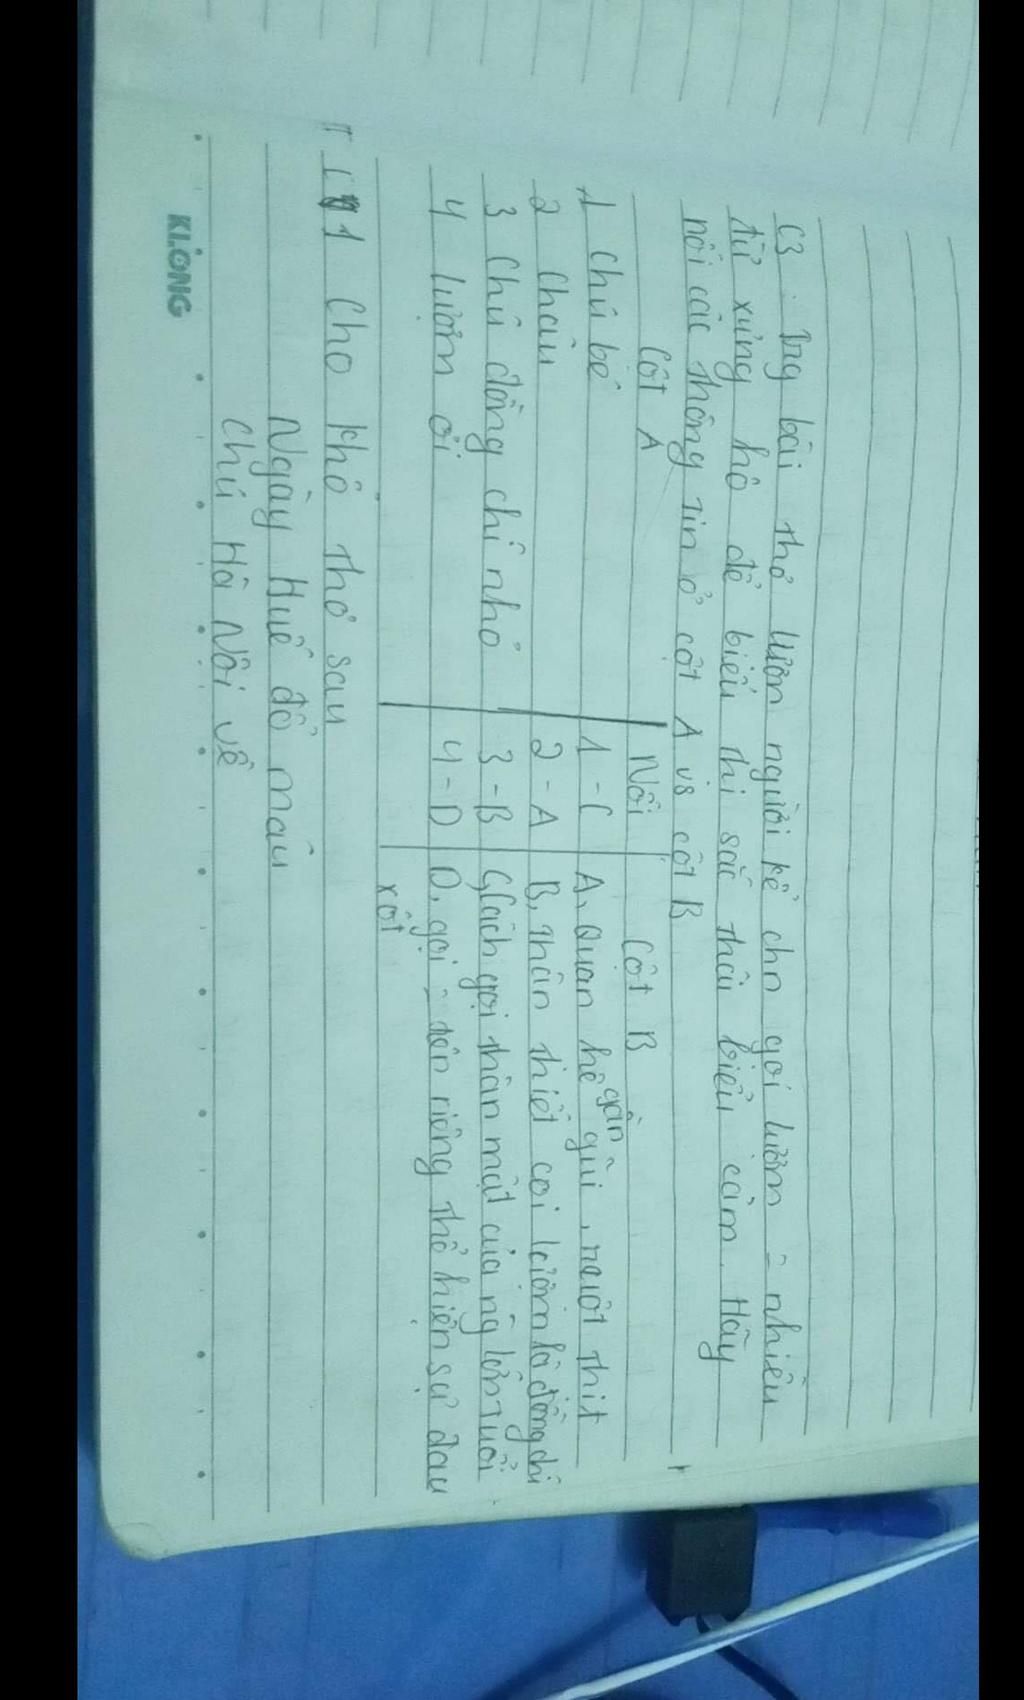 C3. Trg bài thơ lượm người kể chn gọi lượm = nhiều
từ xưng hô để biểu thị sắc thái biểu cảm. Hãy
nối các thông tin ở cột A vs cột B
Cột A Nối Cột B
1 chú bé 1 - C A, Quan hệ gần gũi, ruột thịt
2 cháu 2 - A B, thân thiết coi lượm là đồng chí
3 chú đồng chí nhỏ 3 - B C, Cách gọi thân mật của ng lớn tuổi
4 lượm ơi 4 - D D, gọi = tên riêng thể hiện sự đau
xót
1 Cho khổ thơ sau
Ngày Huế đổ máu
Chú Hà Nội về
KLONG